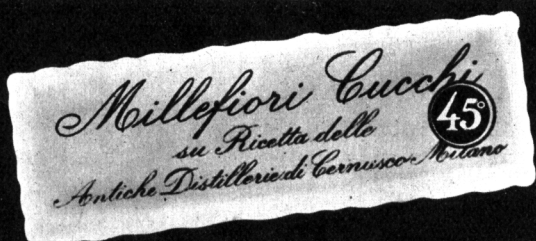 Millefiori Cucchi
45°
su Ricetta delle
Antiche Distillerie di Cernusco Milano